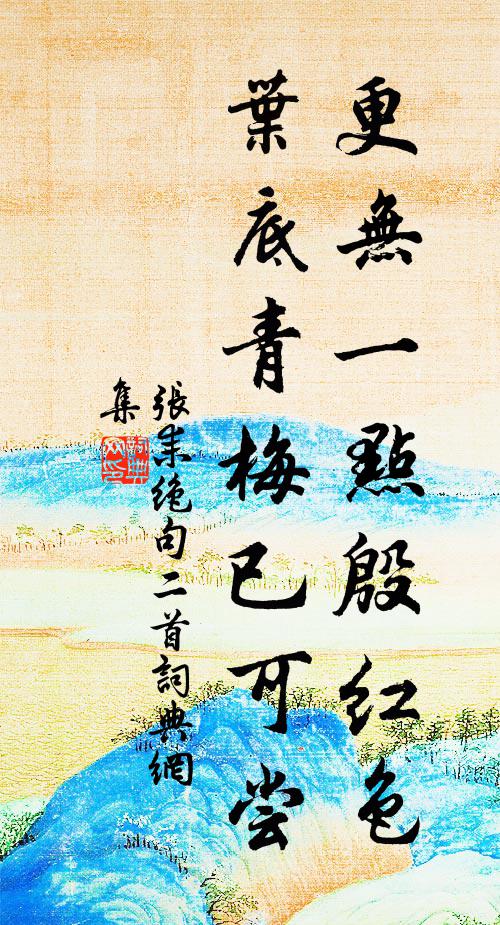 更無一點殷紅色
葉底青梅已可尝
張耒绝句二首詞典網
集